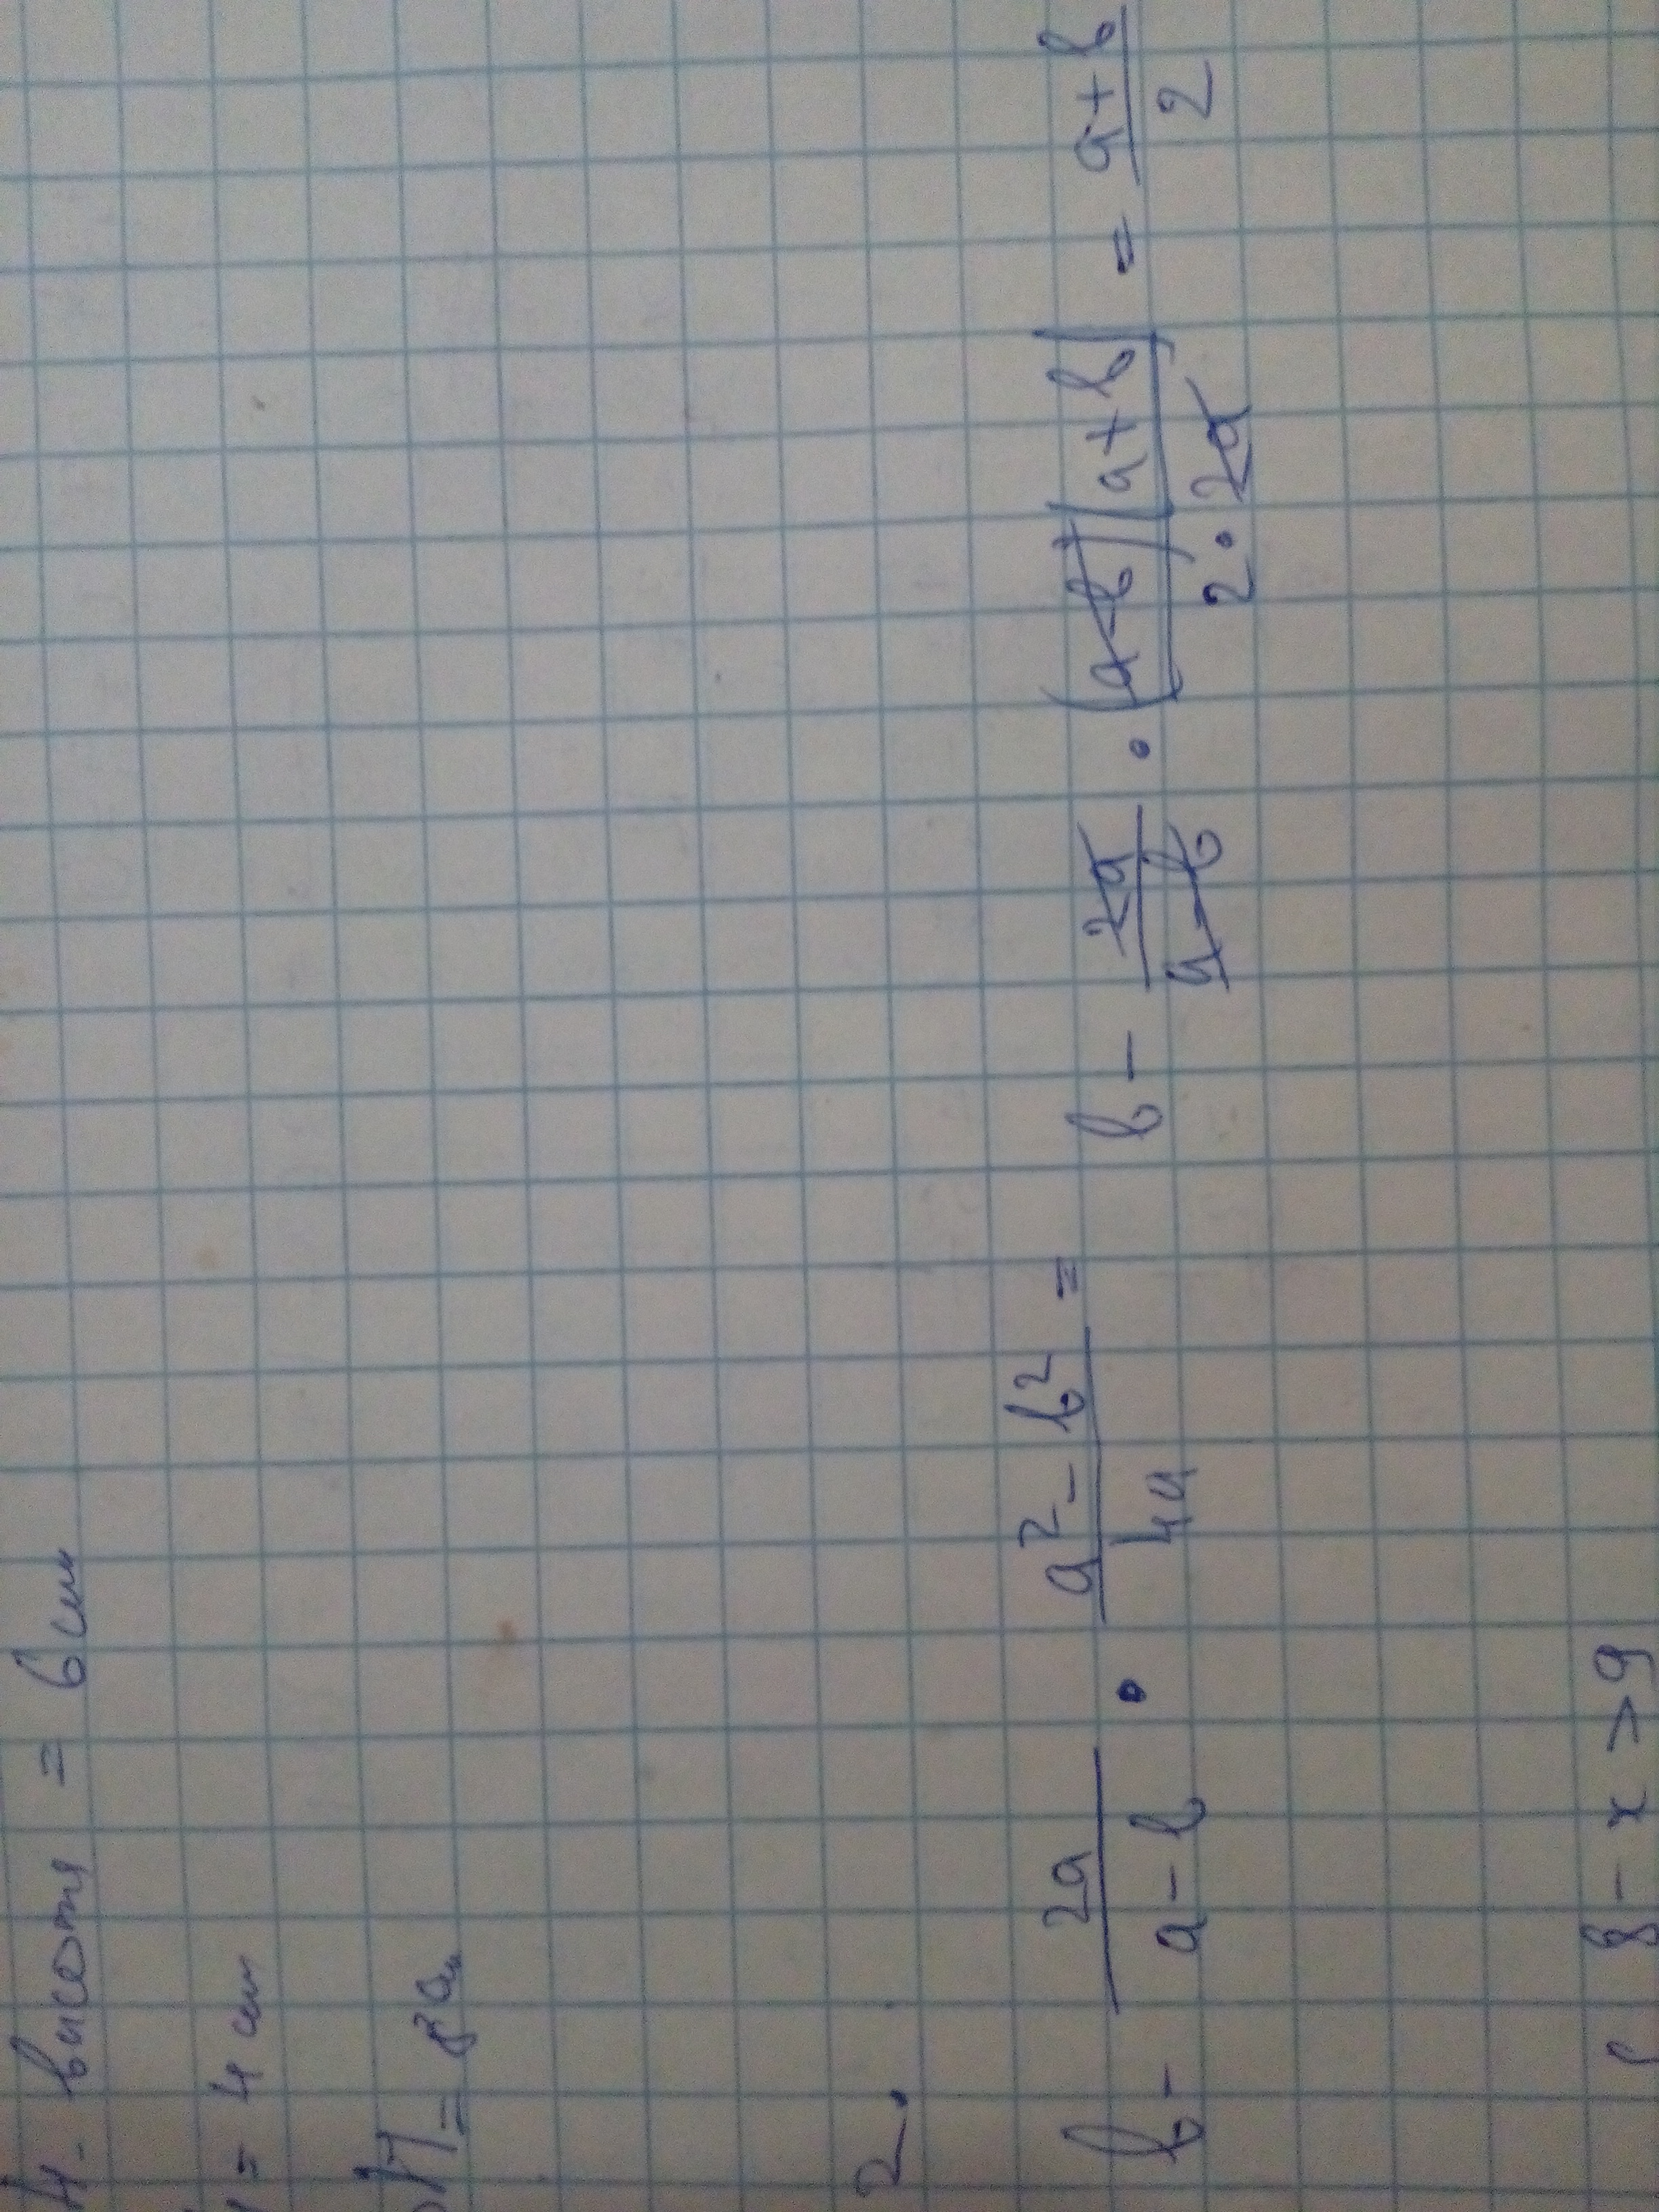 высота = 6 см
= 4 см
= 8 см
2.
b - \frac{2a}{a-b} · \frac{a^2-b^2}{4a} = b - \frac{2a}{a-b} · \frac{(a-b)(a+b)}{2·2a} = \frac{a+b}{2}
8 - x > 9